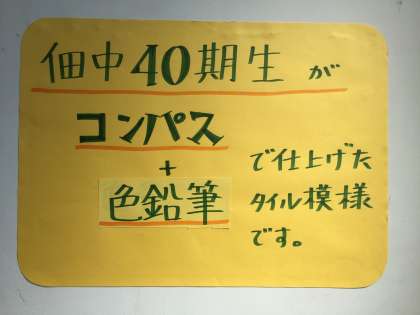 佃中40期生が
コンパス
+
色鉛筆
で仕上げた
タイル模様
です。